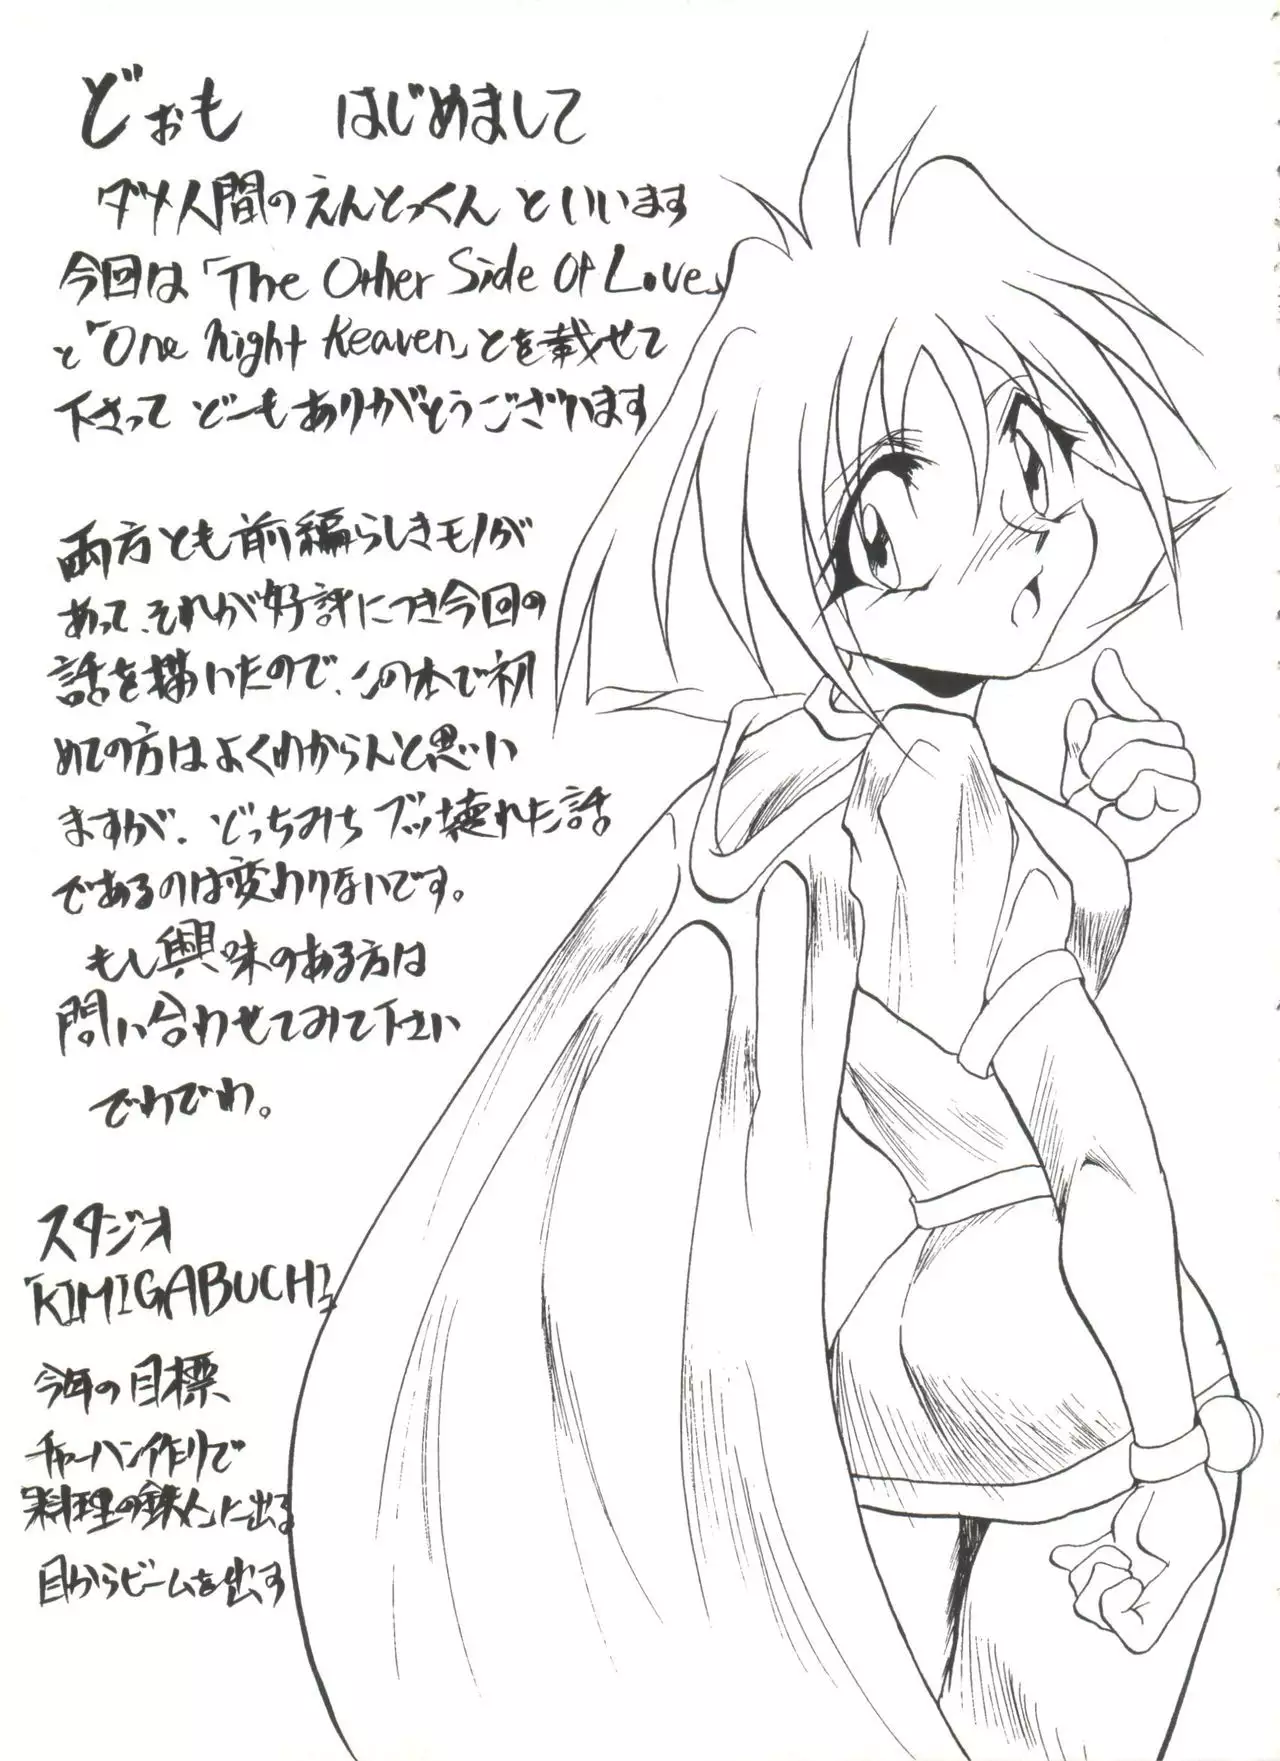 どぉも はじめまして
ダメ人間のえんとっくんといいます
今回は「The Other Side Of Love」
と「One Night Heaven」とを載せて
下さって どーもありがとうございます
両方とも前編らしきモノが
あって、それが好評につき今回の
話を描いたので、この本で初
めての方はよくわからんと思い
ますが、どっちみちブッ壊れた話
であるのは変わりないです。
もし興味のある方は
問い合わせてみて下さい
でわでわ。
スタジオ
「KIMIGABUCHI」
今年の目標
チャーハン作りで
「料理の鉄人」に出る
目からビームを出す